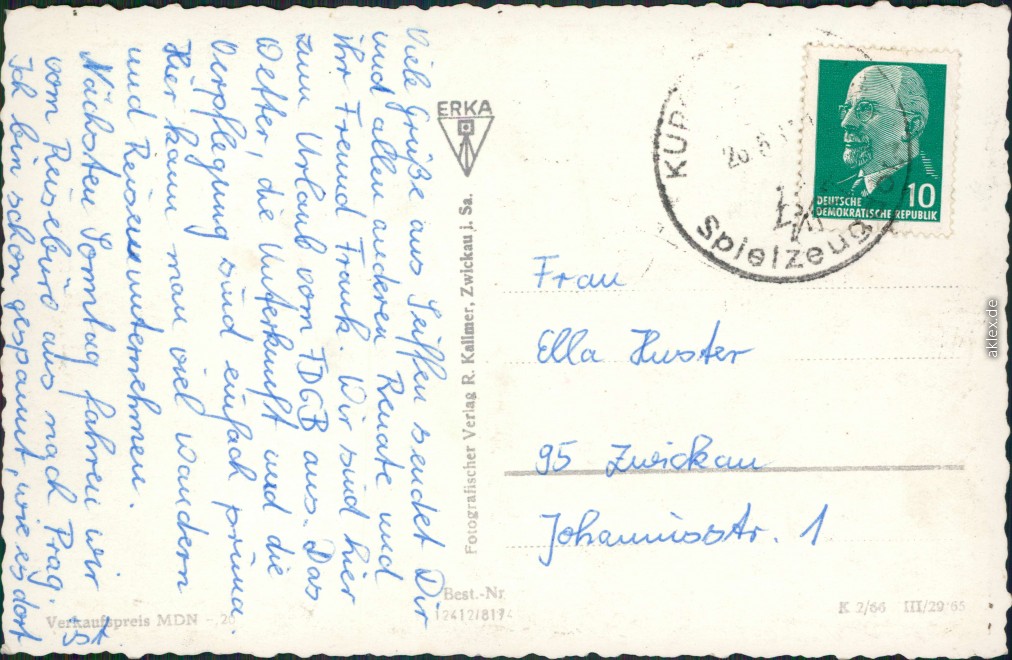 Viele Grüße aus Seiffen sendet Dir
und allen anderen Renate und
ihr Freund Frank. Wir sind hier
zum Urlaub vom FDGB aus. Das
Wetter, die Unterkunft und die
Verpflegung sind einfach prima.
Hier kann man viel wandern
und Reisen unternehmen.
Nächsten Sonntag fahren wir
vom Reisebüro aus nach Prag.
Ich bin schon gespannt, wie es dort
ist.
ERKA
Fotografischer Verlag R. Kallmer, Zwickau i. Sa.
Spielzeug
DEUTSCHE
DEMOKRATISCHE REPUBLIK
10
Frau
Ella Huster
95 Zwickau
Johannisstr. 1
Best.-Nr.
12412/8174
Verkaufspreis MDN -,20
K 2/66 III/29/65
aklex.de